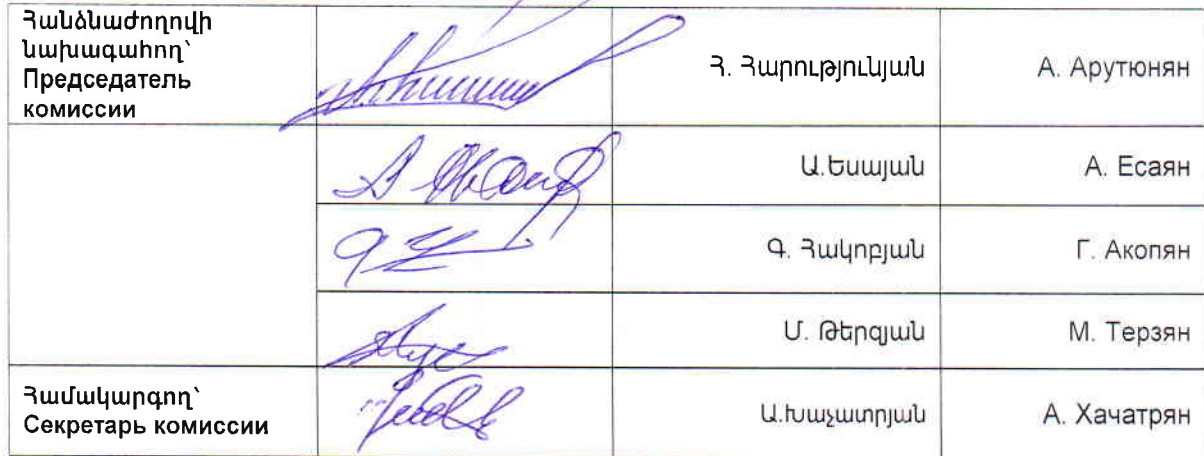 Հանձնաժողովի
նախագահող՝
Председатель
комиссии
Հ. Հարությունյան
А. Арутюнян
Ա.Եսայան
А. Есаян
Գ. Հակոբյան
Г. Акопян
Մ. Թերզյան
М. Терзян
Համակարգող՝
Секретарь комиссии
Ա.Խաչատրյան
А. Хачатрян